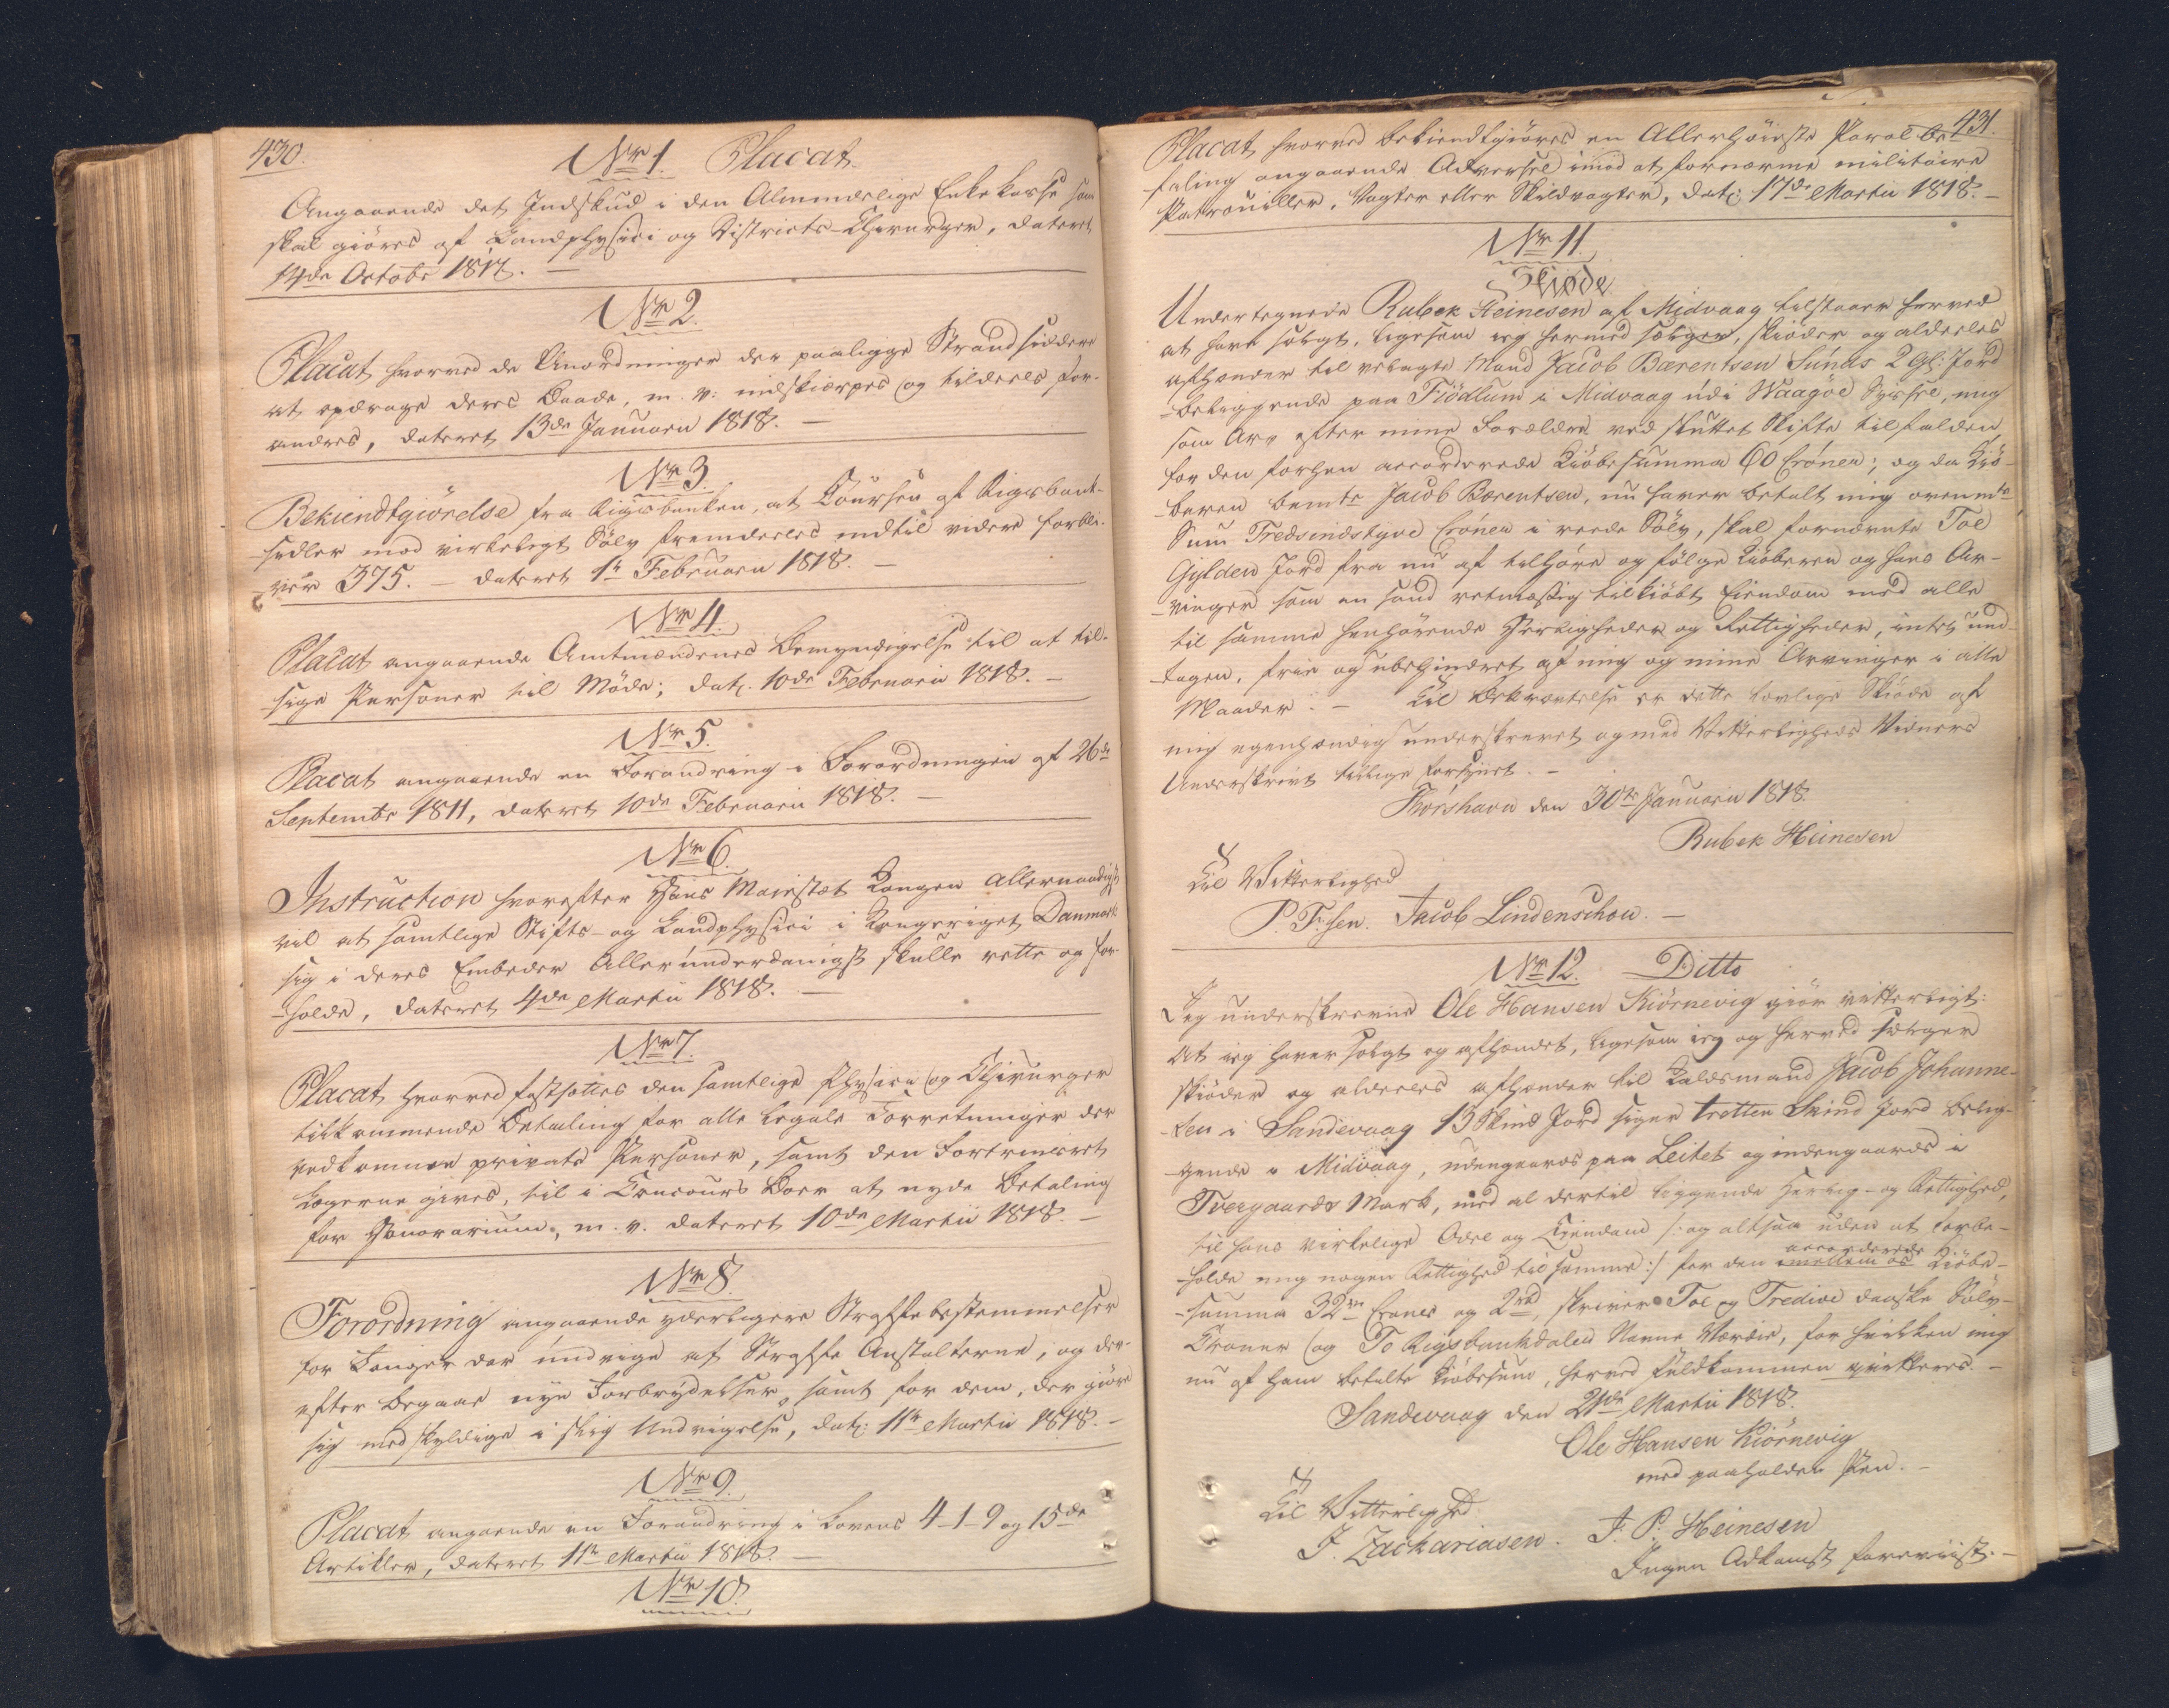 430.
No 1. Placat
Angaaende det Indskud i den Almindelige Enkekasse som
skal giöres af Landphysici og Districts-Chirurger, dateret
14de Octobr 1817. —
No 2.
Placat, hvorved de Anordninger der paaligge Strandsiddere
at opdrage deres Baade, m. v: indskiærpes og tildeels for-
andres, dateret 13de Januarii 1818. —
No 3.
Bekiendtgiörelse fra Rigsbanken, at Coursen af Rigsbank-
sedler mod virkeligt Sölv fremdeeles indtil videre forbli-
ver 375. — dateret 1te Februarii 1818. —
No 4.
Placat angaaende Amtmændenes Bemyndigelse til at til-
sige Personer til Möde; dat. 10de Februarii 1818. —
No 5.
Placat angaaende en Forandring i Forordningen af 26de
Septembr 1811, dateret 10de Februarii 1818. —
No 6.
Instruction hvorefter Hans Maiestæt Kongen Allernaadigst
vil at samtlige Stifts- og Landphysici i Kongeriget Danmark
sig i deres Embeder Allerunderdanigst skulle rette og for-
-holde, dateret 4de Martii 1818. —
No 7.
Placat hvorved fastsættes den samtlige Physici og Chirurger
tilkommende Betaling for alle legale Forretninger der
vedkommer private Personer, samt den Fortrinsret
Lægerne gives, til i Concours Boer at nyde Betaling
for Honorarium, m. v. dateret 10de Martii 1818. —
No 8.
Forordning angaaende yderligere Straffebestemmelser
for Fanger der undvige af Straffe Anstalterne, og der-
efter begaae nye Forbrydelser, samt for dem, der giöre
sig medskyldige i slig Undvigelse, dat: 11te Martii 1818. —
No 9.
Placat angaaende en Forandring i Lovens 4-1-9 og 15de
Artikler, dateret 11te Martii 1818. —
No 10.
431.
Placat, hvorved bekiendtgiöres en Allerhöieste Parol be-
faling angaaende Advarsel imod at fornærme militaire
Patrouiller, Vagter eller Skildvagter, dat: 17de Martii 1818. —
No 11.
Skiöde
Undertegnede Rubek Heinesen af Midvaag tilstaaer herved
at have solgt, ligesom ieg hermed sælger, skiöder og aldeeles
afhænder til velagte Mand Jacob Bærentsen Sunds 2 Gl: Jord
-beliggende paa Fiödlum i Midvaag udi Waagöe Syssel, mig
som Arv efter mine Forældre ved sluttet Skifte tilfalden
for den forhen accorderede Kiöbesumma 60 Crónen; og da Kiö-
-beren bemte Jacob Bærentsen, nu haver betalt mig ovenmte
Sum Tredsindstyve Crónen i reede Sölv, skal fornævnte Toe
Gylden Jord fra nu af tilhöre og fölge Kiöberen og hans Ar-
-vinger som en sand retmæssig tilkiöbt Eiendom med alle
til samme henhörende Herligheder og Rettigheder, intet und-
-tagen, frie og ubehindret af mig og mine Arvinger i alle
Maader. — Til Bekræftelse er dette lovlige Skiöde af
mig egenhændig underskrevet og med Vitterligheds Vidners
Underskrivt tillige forsynet. —
Thorshavn den 30te Januarii 1818.
Rubek Heinesen
Til Vitterlighed
P. F:sen. Jacob Lindenschou. —
No 12. Ditto
Jeg underskrevne Ole Hansen Kiörnevig giör vitterligt:
At ieg haver solgt og afhændet, ligesom ieg og herved sælger
skiöder og aldeeles afhænder til Kaldsmand Jacob Johanne-
-sen i Sandevaag 13 Skind Jord siger tretten Skind Jord belig-
-gende i Midvaag, udengaards paa Leitet og indengaards i
Tvergaards Mark, med al dertil liggende Herlig- og Rettighed,
til hans virkelige Odel og Eiendom /: og altsaa uden at forbe-
-holde mig nogen Rettighed til samme :/ for den imellem os accorderede Kiöbe-
-summa 32ve Crones og 2rbd, skriver Toe og Tredive danske Sölv-
Croner og To Rigsbankdaler Navne Værdie, for hvilken mig
nu af ham betalte Kiöbesum, herved fuldkommen qvitteres. —
Sandevaag den 21de Martii 1818.
Ole Hansen Kiörnevig
med paaholden Pen. —
Til Vitterlighed
J. Zachariasen. J. P. Heinesen
Ingen Adkomst foreviist. —